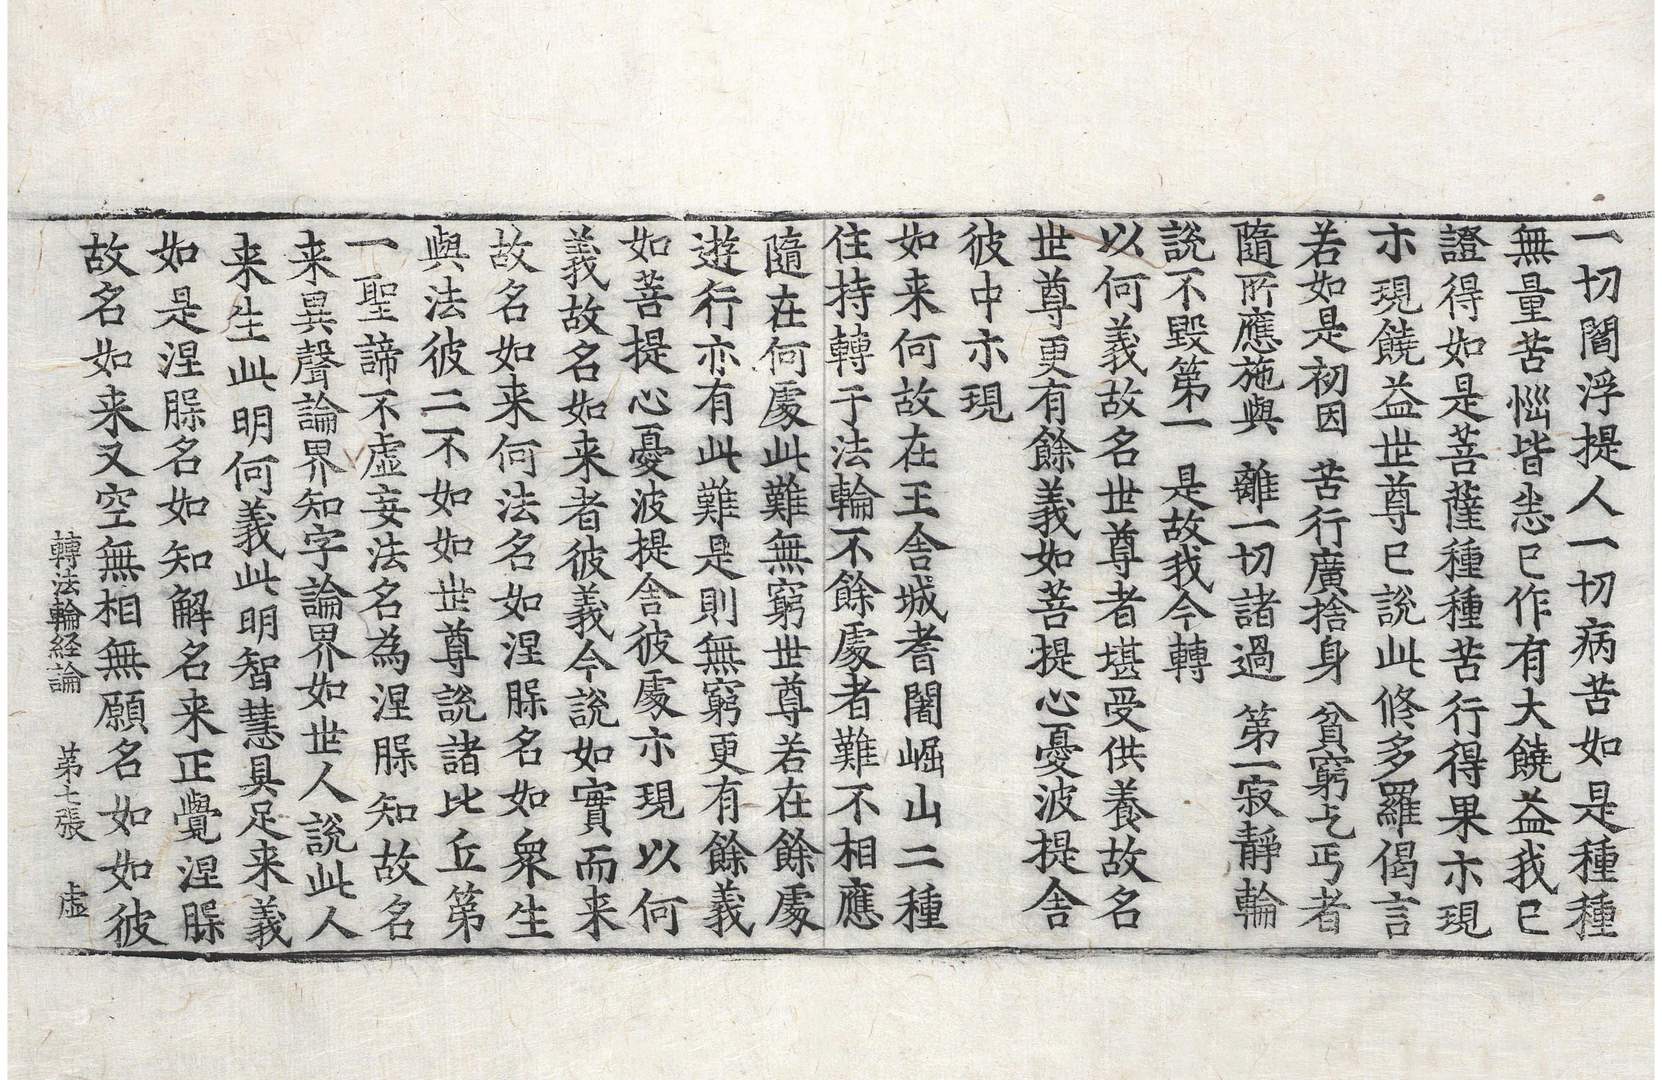 一切閻浮提人一切病苦如是種種
無量苦惱皆悉已作有大饒益我已
證得如是菩薩種種苦行得果亦現
亦現饒益世尊已說此修多羅偈言
若如是初因　苦行廣捨身　貧窮乞丐者
隨所應施與　離一切諸過　第一寂靜輪
說不毀第一　是故我今轉
以何義故名世尊者堪受供養故名
世尊更有餘義如菩提心憂波提舍
彼中亦現
如来何故在王舍城耆闍崛山二種
住持轉于法輪不餘處者難不相應
隨在何處此難無窮世尊若在餘處
遊行亦有此難是則無窮更有餘義
如菩提心憂波提舍彼處亦現以何
義故名如来者彼義今說如實而来
故名如来何法名如涅槃名如眾生
與法彼二不如如世尊說諸比丘第
一聖諦不虛妄法名為涅槃知故名
来異聲論界知字論界如世人說此人
来生此明何義此明智慧具足来義
如是涅槃名如知解名来正覺涅槃
故名如来又空無相無願名如如彼
轉法輪経論　第七張　虛